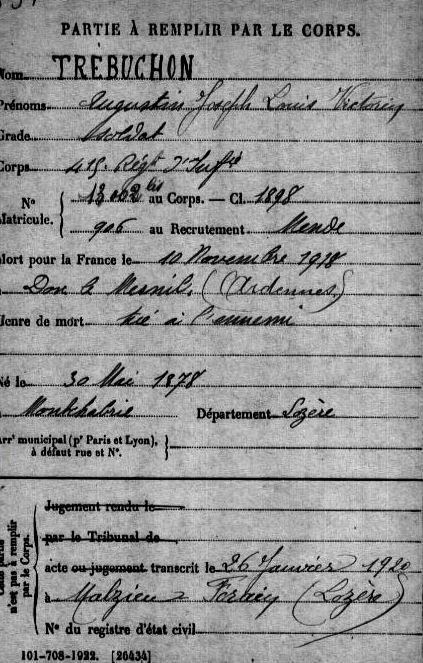 PARTIE À REMPLIR PAR LE CORPS.
Nom TRÉBUCHON
Prénoms Augustin Joseph Louis Victorin
Grade Soldat
Corps 415e Régt d'Infie
N° Matricule. 13.002 bis au Corps. — Cl. 1898
906 au Recrutement Mende
Mort pour la France le 10 Novembre 1918
à Dom le Mesnil, (Ardennes)
Genre de mort tué à l'ennemi
Né le 30 Mai 1878
à Département Lozère
Arrt municipal (pr Paris et Lyon),
à défaut rue et N°.
Cette partie n'est pas à remplir par le Corps.
Jugement rendu le
par le Tribunal de
acte ou jugement transcrit le 26 Janvier 1920
à Malzieu Forain (Lozère)
N° du registre d'état civil
101-708-1922. [26434]